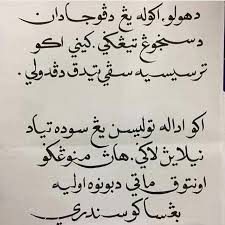 دهولو، اکوله يڠ دڤوجا دان
دسنجوڠ تيڠݢي. کيني اکو
ترسيسيه سڤي تيدق دڤدولي.
اکو اداله توليسن يڠ سوده تياد
نيلاين لاݢي. هاڽ منوڠݢو
اونتوق ماتي دبونوه اوليه
بڠساکو سنديري